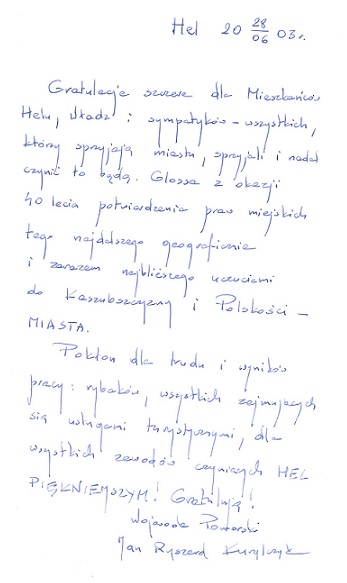 Hel 20 28/06 03 r.
Gratulacje szczere dla Mieszkańców
Helu, władz i sympatyków – wszystkich,
którzy sprzyjają miastu, sprzyjali i nadal
czynić to będą. Glossa z okazji
40 lecia potwierdzenia praw miejskich
tego najdalszego geograficznie
i zarazem najbliższego uczuciami
do Kaszubszczyzny i Polskości –
MIASTA.
Pokłon dla trudu i wyników
pracy: rybaków, wszystkich zajmujących
się usługami turystycznymi, dla
wszystkich zawodów czyniących HEL
PIĘKNIEJSZYM! Gratuluję!
Wojewoda Pomorski
Jan Ryszard Kurylczyk